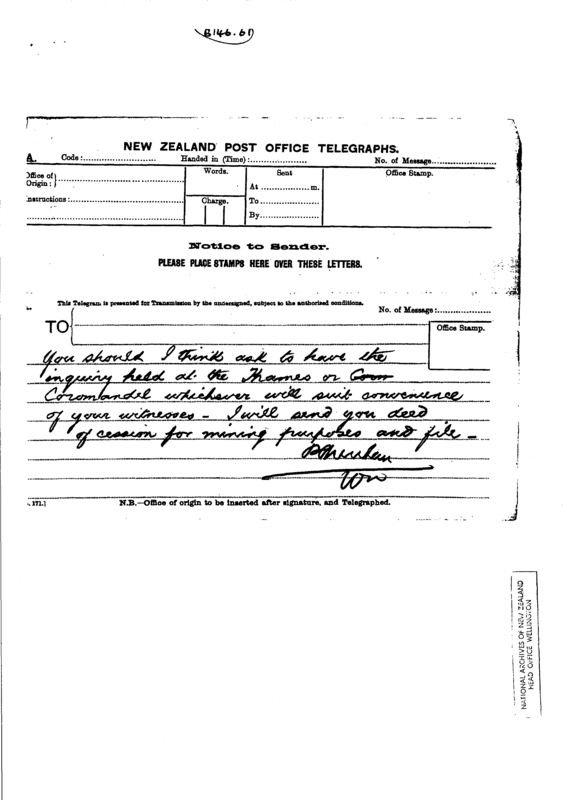 B146.61
NEW ZEALAND POST OFFICE TELEGRAPHS.
A. Code:........................ Handed in (Time):.................... No. of Message....................
Office of Origin: }
Words.
Sent
Office Stamp.
At ................ m.
nstructions:
Charge.
To....................
By....................
Notice to Sender.
PLEASE PLACE STAMPS HERE OVER THESE LETTERS.
This Telegram is presented for Transmission by the undersigned, subject to the authorised conditions.
No. of Message:....................
TO
Office Stamp.
You should I think ask to have the
inquiry held at the Thames or Corom
Coromandel whichever will suit convenience
of your witnesses - I will send you deed
of cession for mining purposes and file -
PSheridan
Wn
. 171.] N.B.—Office of origin to be inserted after signature, and Telegraphed.
NATIONAL ARCHIVES OF NEW ZEALAND
HEAD OFFICE WELLINGTON